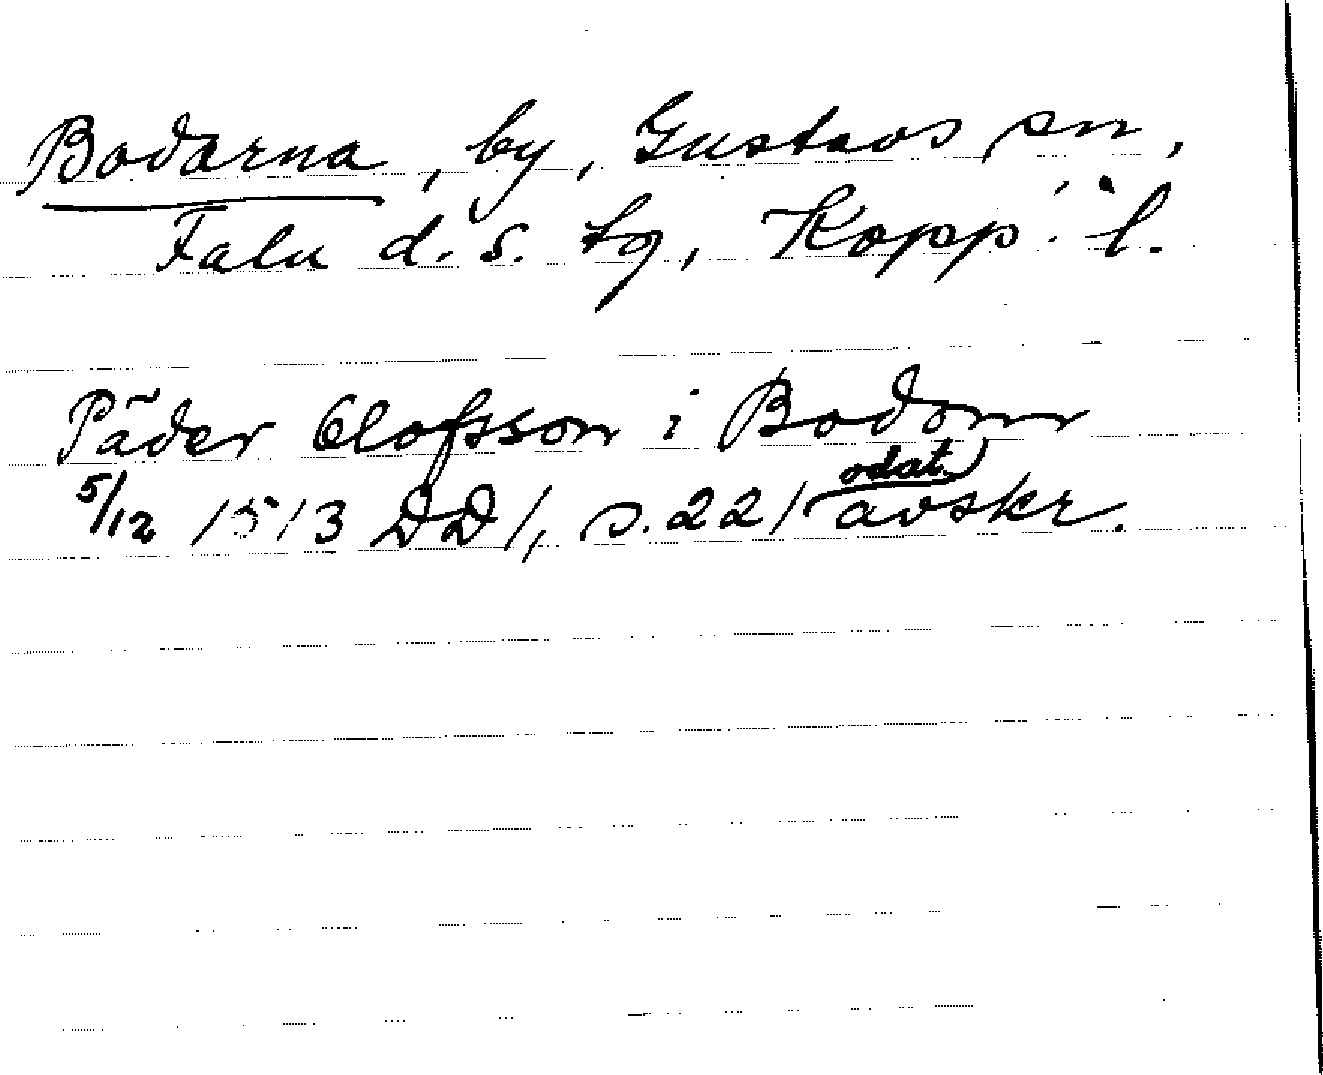 Bodarna, by, Gustavs sn,
Falu d. s. tg, Kopp. l.
Päder Olofsson i Bodom
5/12 1513 DD 1, s. 221 odat. avskr.